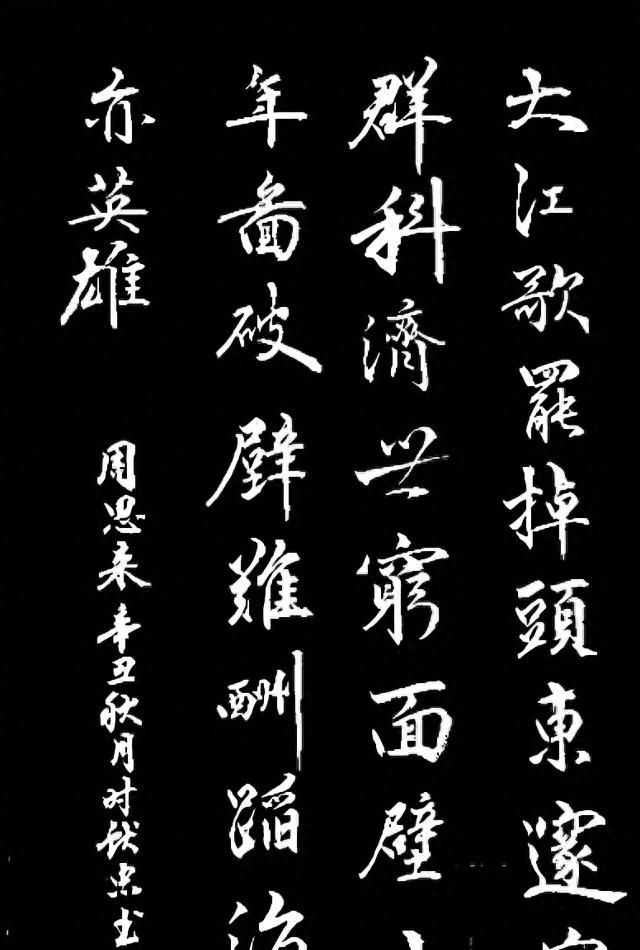 大江歌罷掉頭東邃
群科濟世窮面壁
年啚破壁難酬蹈
亦英雄
周恩来辛丑秋月时献忠书